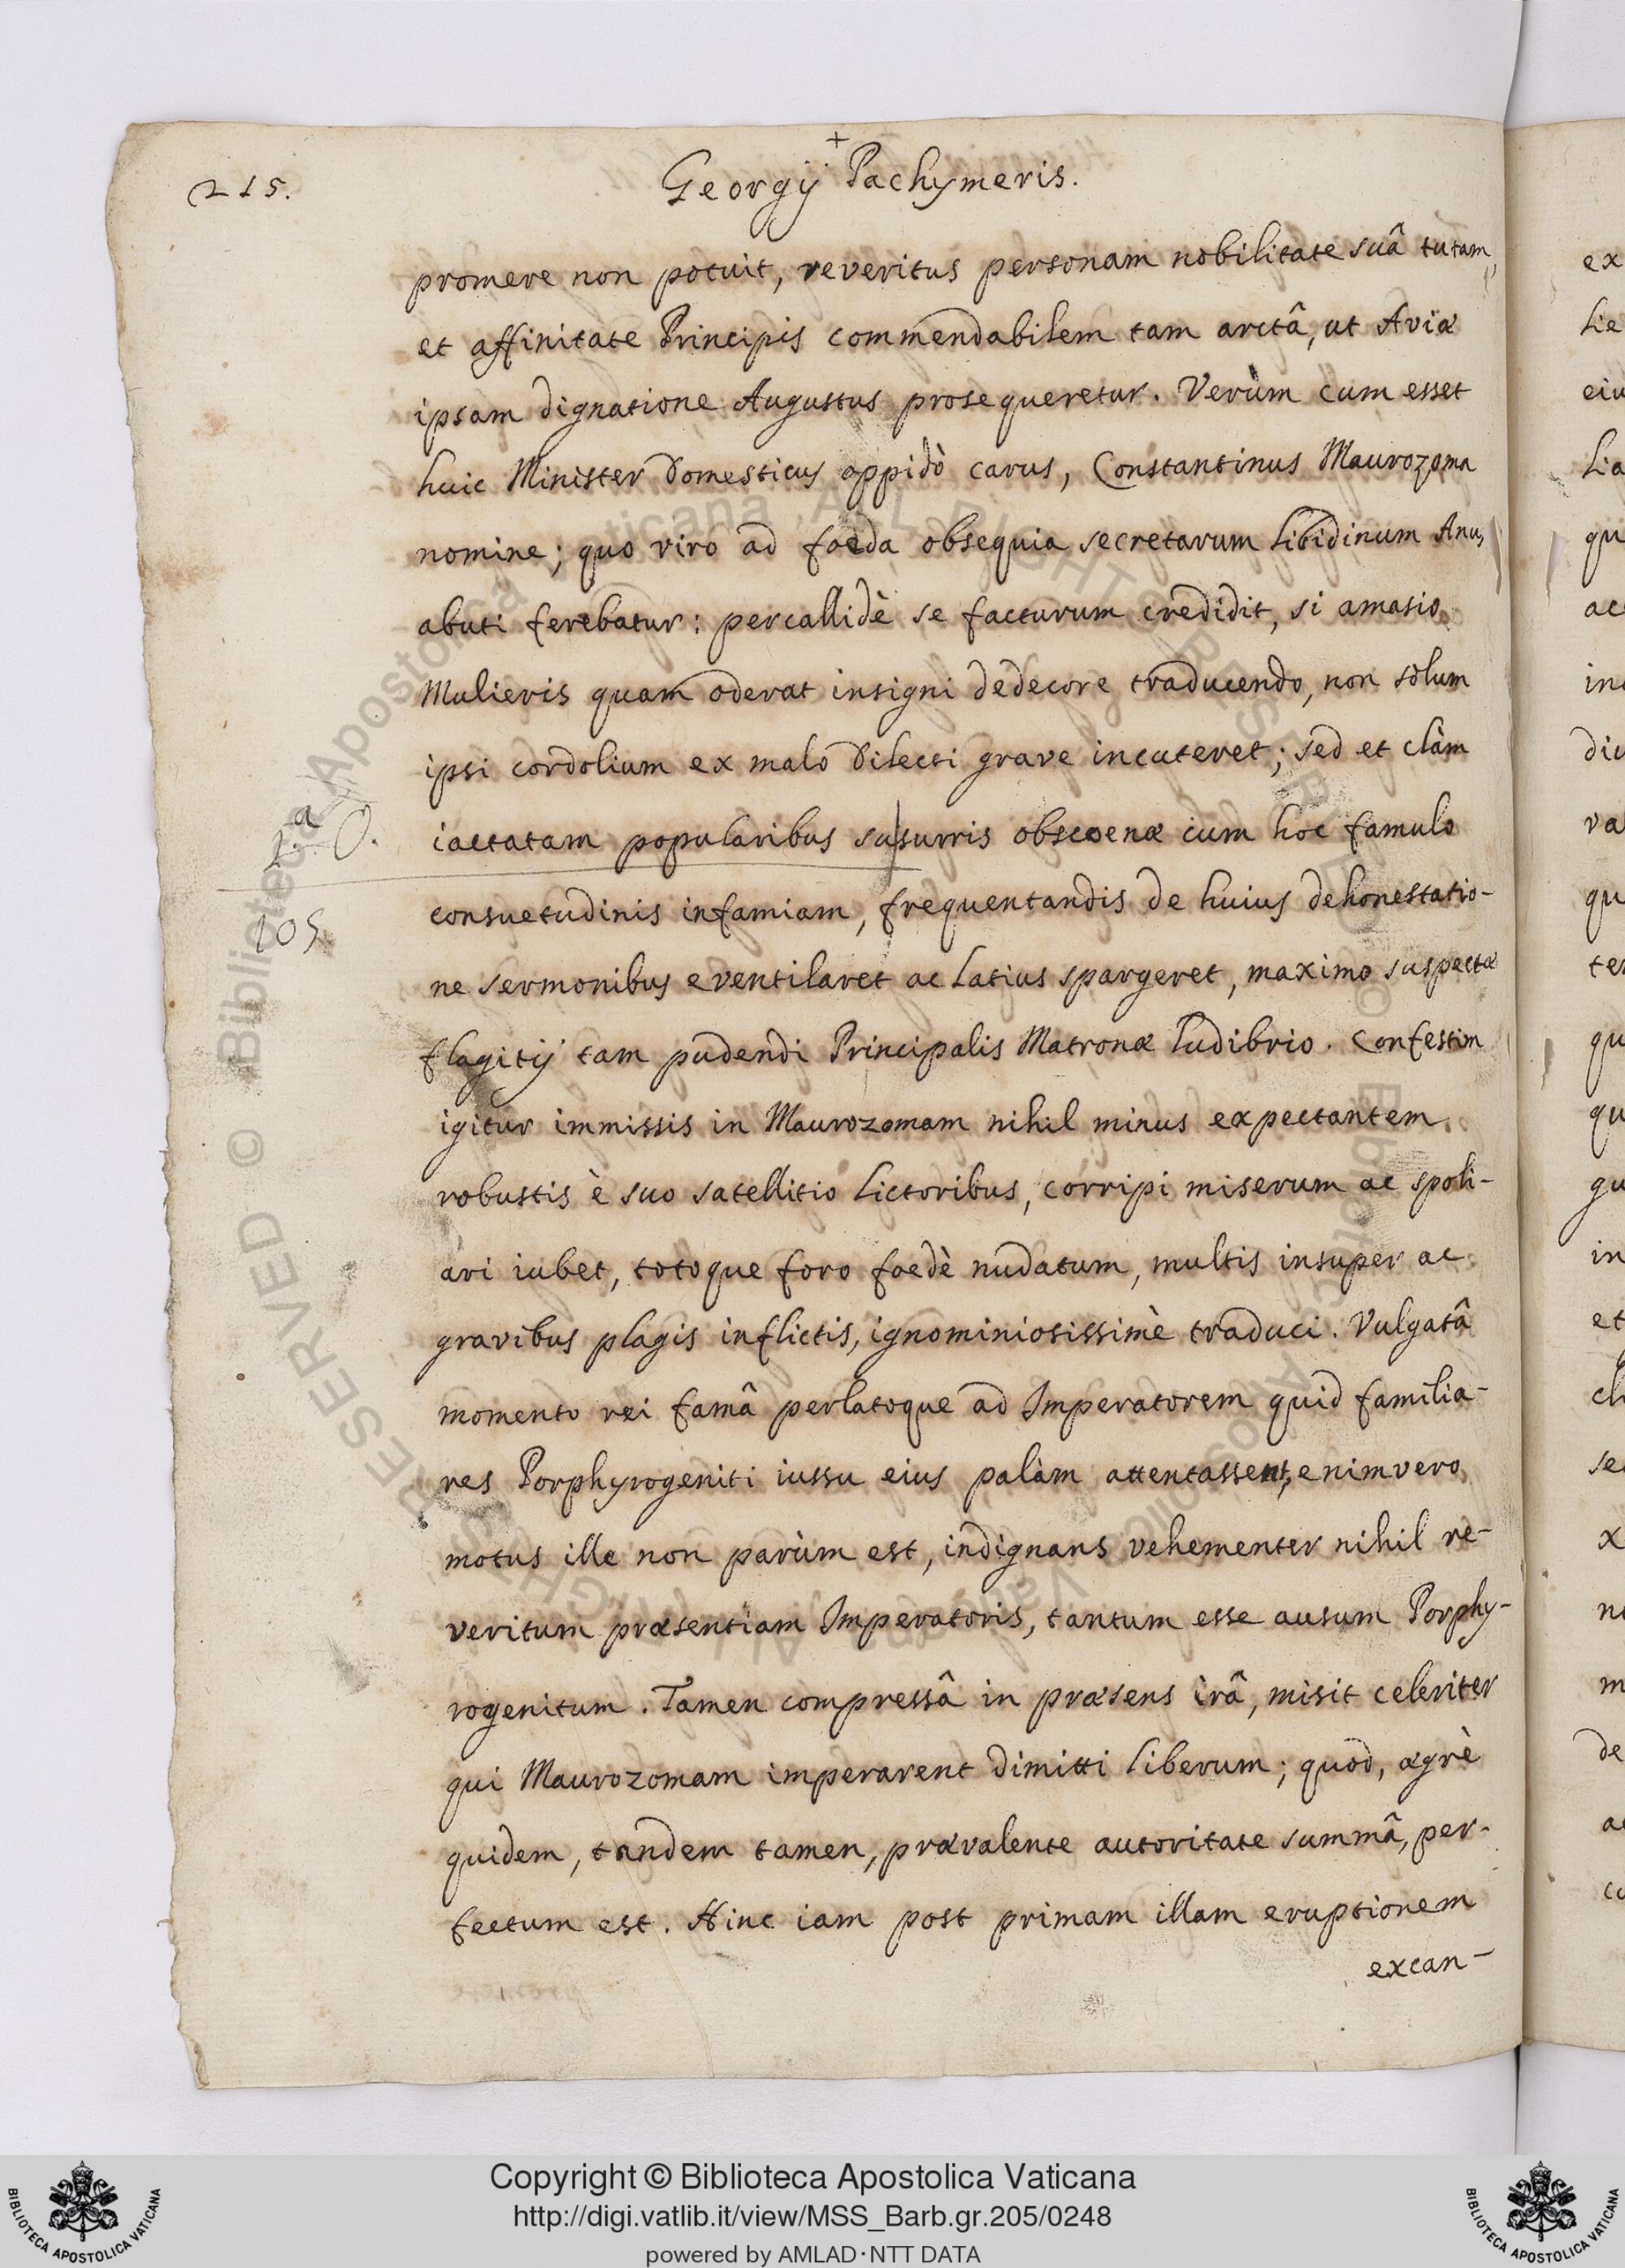 215.
+
Georgij Pachymeris.
promere non potuit, reveritus personam nobilitate suâ tutam,
et affinitate Principis commendabilem tam arctâ, ut Aviæ
ipsam dignatione Augustus prosequeretur. Verùm cum esset
huic Minister domesticus oppidò carus, Constantinus Maurozoma
nomine; quo viro ad foeda obsequia secretarum libidinum Anus
abuti ferebatur: percallidè se facturum credidit, si amasio
Mulieris quam oderat insigni dedecore traducendo, non sòlum
ipsi cordolium ex malo dilecti grave incuteret; sed et clàm
iactatam popularibus su|surris obscoenæ cum hoc famulo
2.a O.
105
consuetudinis infamiam, frequentandis de huius dehonestatio-
ne sermonibus eventilaret ac latius spargeret, maximo suspectæ
flagitij tam pudendi Principalis Matronæ ludibrio. Confestim
igitur immissis in Maurozomam nihil minus expectantem
robustis è suo satellitio lictoribus, corripi miserum ac spoli-
ari iubet, totoque foro foedè nudatum, multis insuper ac
gravibus plagis inflictis, ignominiosissimè traduci. Vulgatâ
momento rei famâ perlatoque ad Imperatorem quid familia-
res Porphyrogeniti iussu eius palàm attentassent, enimvero
motus ille non parùm est, indignans vehementer nihil re-
veritum præsentiam Imperatoris, tantum esse ausum Porphy-
rogenitum. Tamen compressâ in præsens irâ, misit celeriter
qui Maurozomam imperarent dimitti liberum; quod, ægrè
quidem, tandem tamen, prævalente autoritate summâ, per-
fectum est. Hinc iam post primam illam eruptionem
excan-
Copyright © Biblioteca Apostolica Vaticana
http://digi.vatlib.it/view/MSS_Barb.gr.205/0248
powered by AMLAD·NTT DATA
BIBLIOTECA APOSTOLICA VATICANA
BIBLIOTECA APOSTOLICA VATICANA